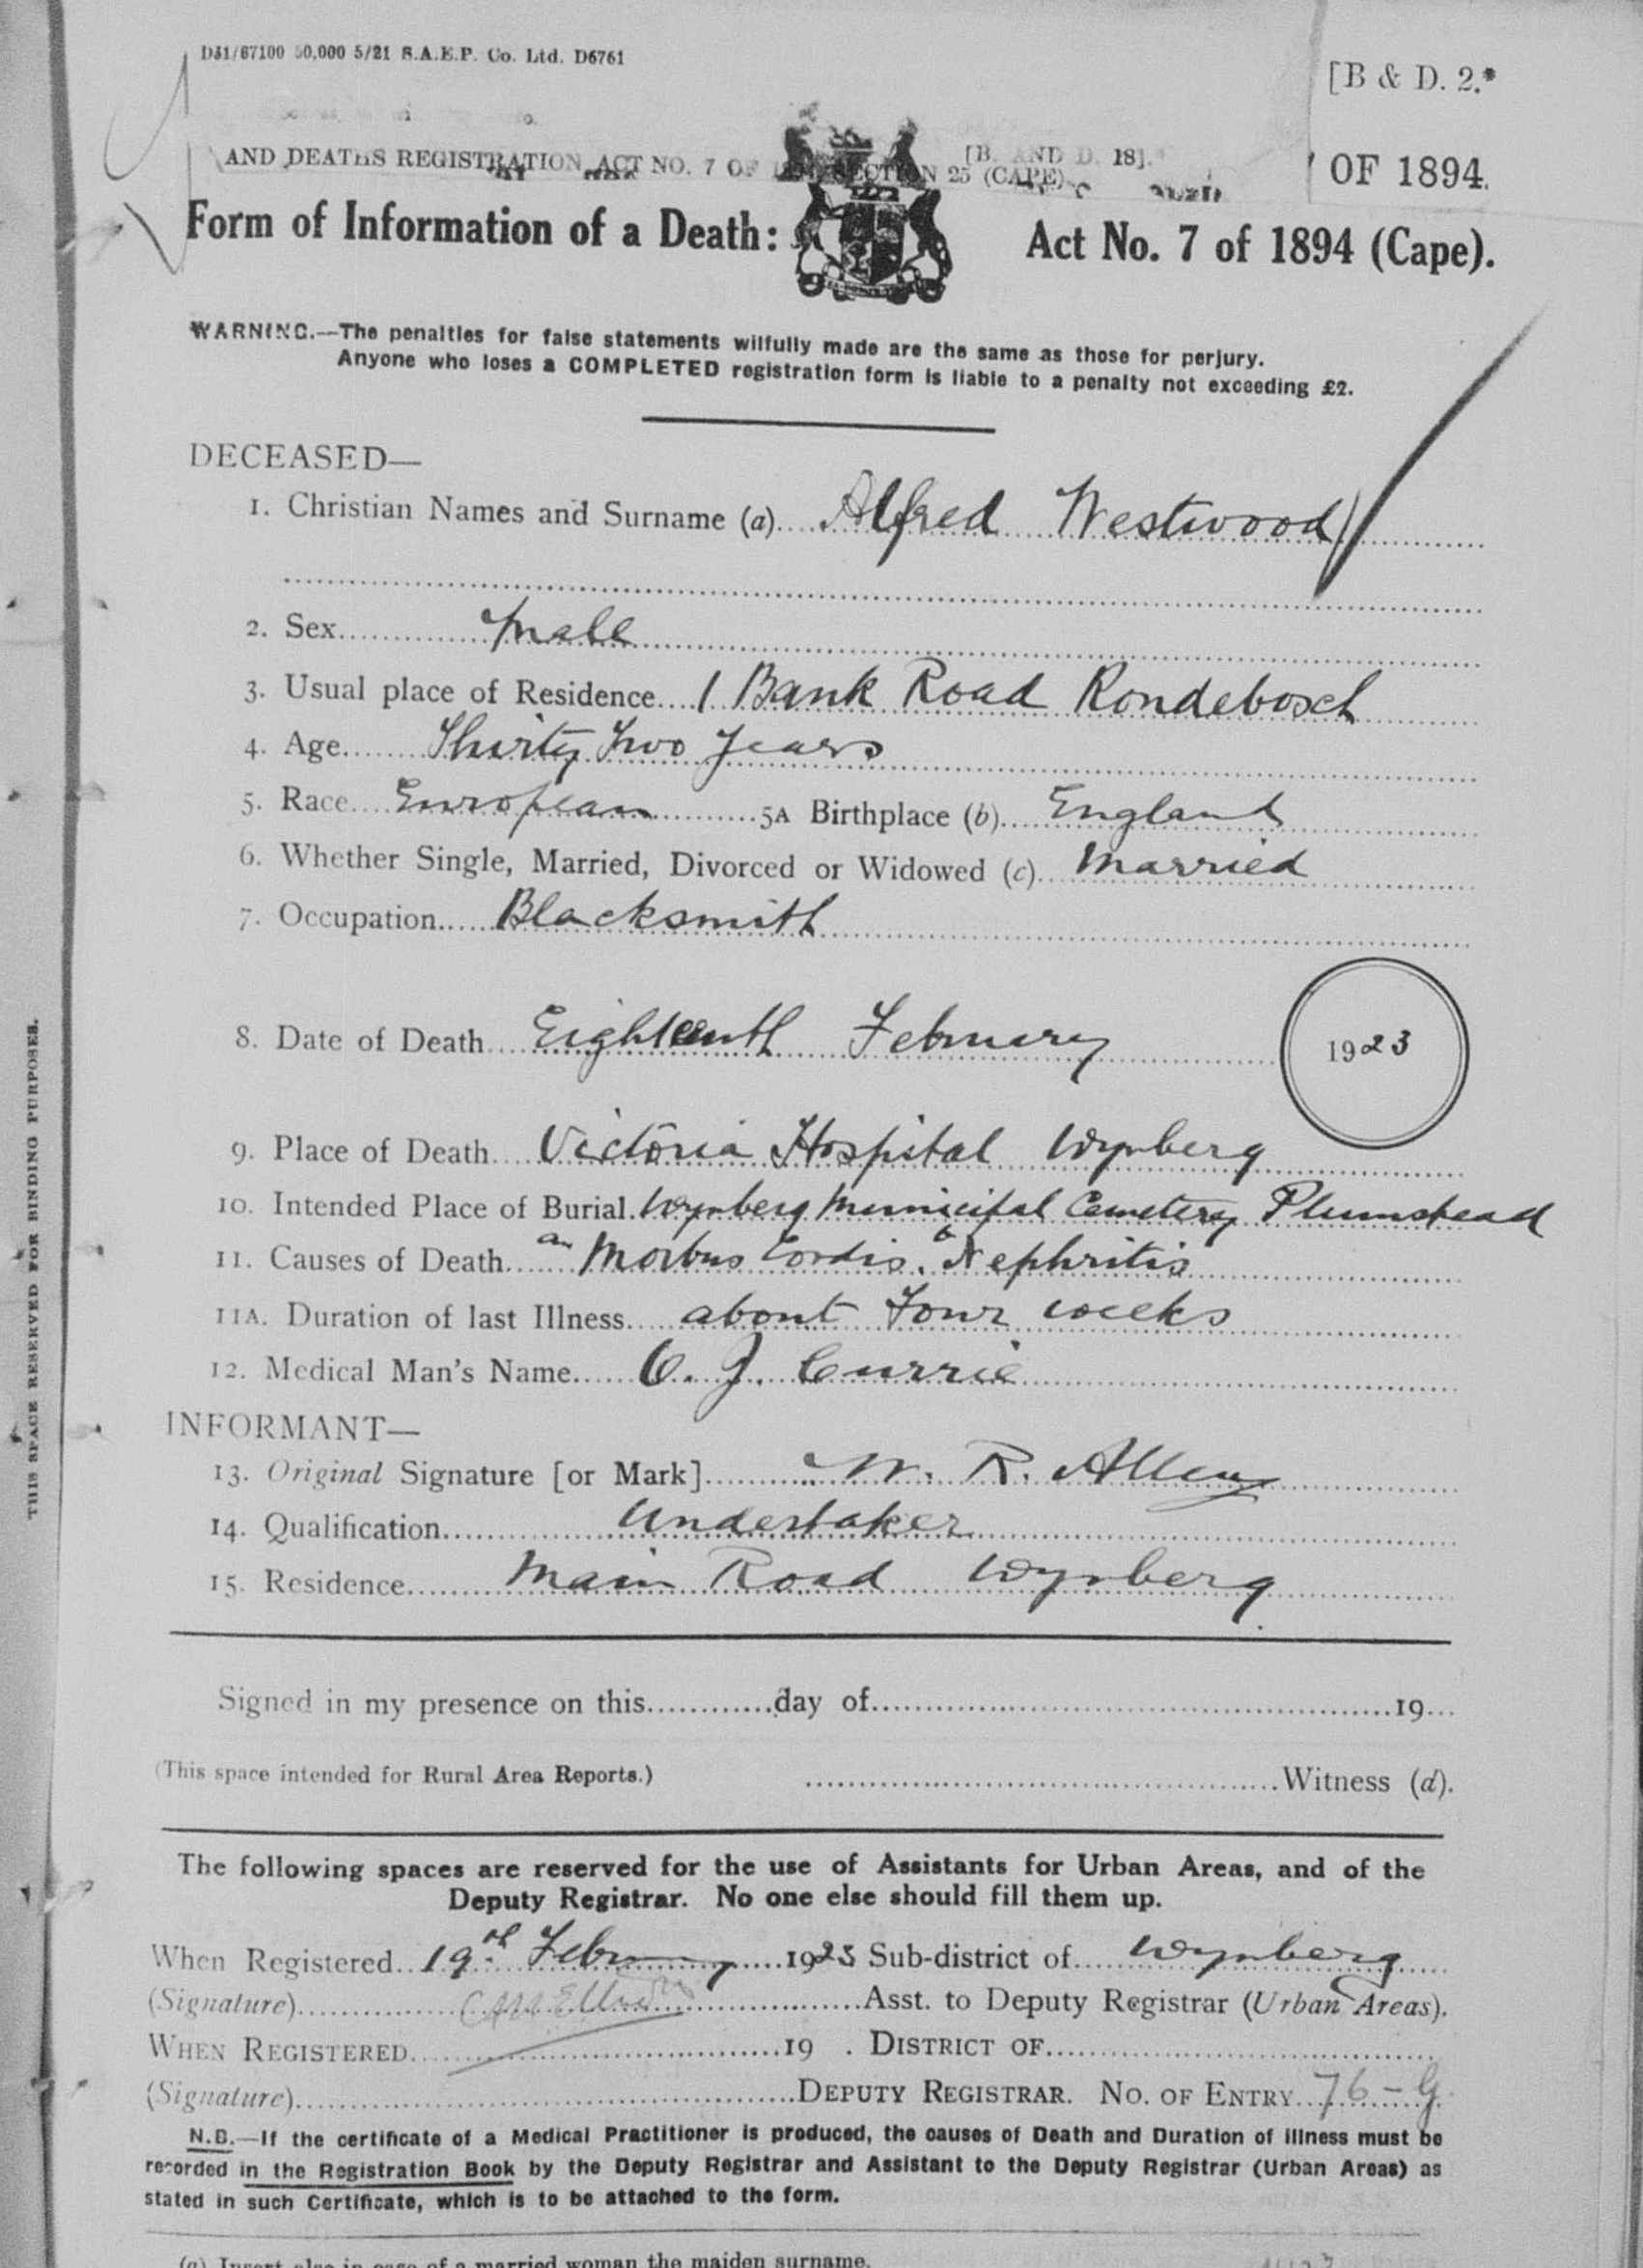 D31/67100 50,000 5/21 S.A.E.P. Co. Ltd. D6761
[B & D. 2.*
[B. AND D. 18].
AND DEATHS REGISTRATION ACT NO. 7 OF SECTION 25 (CAPE)
OF 1894.
Form of Information of a Death: Act No. 7 of 1894 (Cape).
WARNING.—The penalties for false statements wilfully made are the same as those for perjury.
Anyone who loses a COMPLETED registration form is liable to a penalty not exceeding £2.
DECEASED—
1. Christian Names and Surname (a) Alfred Westwood
2. Sex Male
3. Usual place of Residence 1 Bank Road Rondebosch
4. Age Thirty Two Years
5. Race European 5A Birthplace (b) England
6. Whether Single, Married, Divorced or Widowed (c) Married
7. Occupation Blacksmith
8. Date of Death Eighteenth February 1923
9. Place of Death Victoria Hospital Wynberg
10. Intended Place of Burial Wynberg Municipal Cemetery Plumstead
11. Causes of Death a Morbus Cordis. b Nephritis
11A. Duration of last Illness about Four weeks
12. Medical Man's Name O. J. Currie
INFORMANT—
13. Original Signature [or Mark] W. R. Allen
14. Qualification Undertaker
15. Residence Main Road Wynberg
Signed in my presence on this day of 19
(This space intended for Rural Area Reports.) Witness (d).
The following spaces are reserved for the use of Assistants for Urban Areas, and of the
Deputy Registrar. No one else should fill them up.
When Registered 19th February 1923 Sub-district of Wynberg
(Signature) Asst. to Deputy Registrar (Urban Areas).
WHEN REGISTERED 19 . DISTRICT OF
(Signature) DEPUTY REGISTRAR. NO. OF ENTRY 76-G
N.B.—If the certificate of a Medical Practitioner is produced, the causes of Death and Duration of illness must be
recorded in the Registration Book by the Deputy Registrar and Assistant to the Deputy Registrar (Urban Areas) as
stated in such Certificate, which is to be attached to the form.
(a) Insert also in case of a married woman the maiden surname.
THIS SPACE RESERVED FOR BINDING PURPOSES.